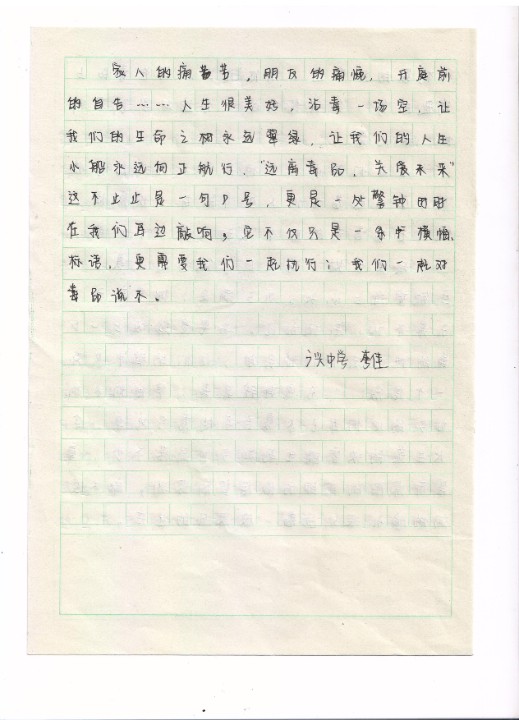 家人的痛苦,朋友的痛惋,开庭前
的自告……人生很美好,沾毒一场空,让
我们的生命之树永远翠绿,让我们的人生
小船永远向正航行,"远离毒品,关爱未来"
这不止止是一句口号,更是一处警钟时时
在我们耳边敲响,它不仅只是一条 横幅、
标语,更需要我们一起执行:我们一起对
毒品说不。
中学 李佳